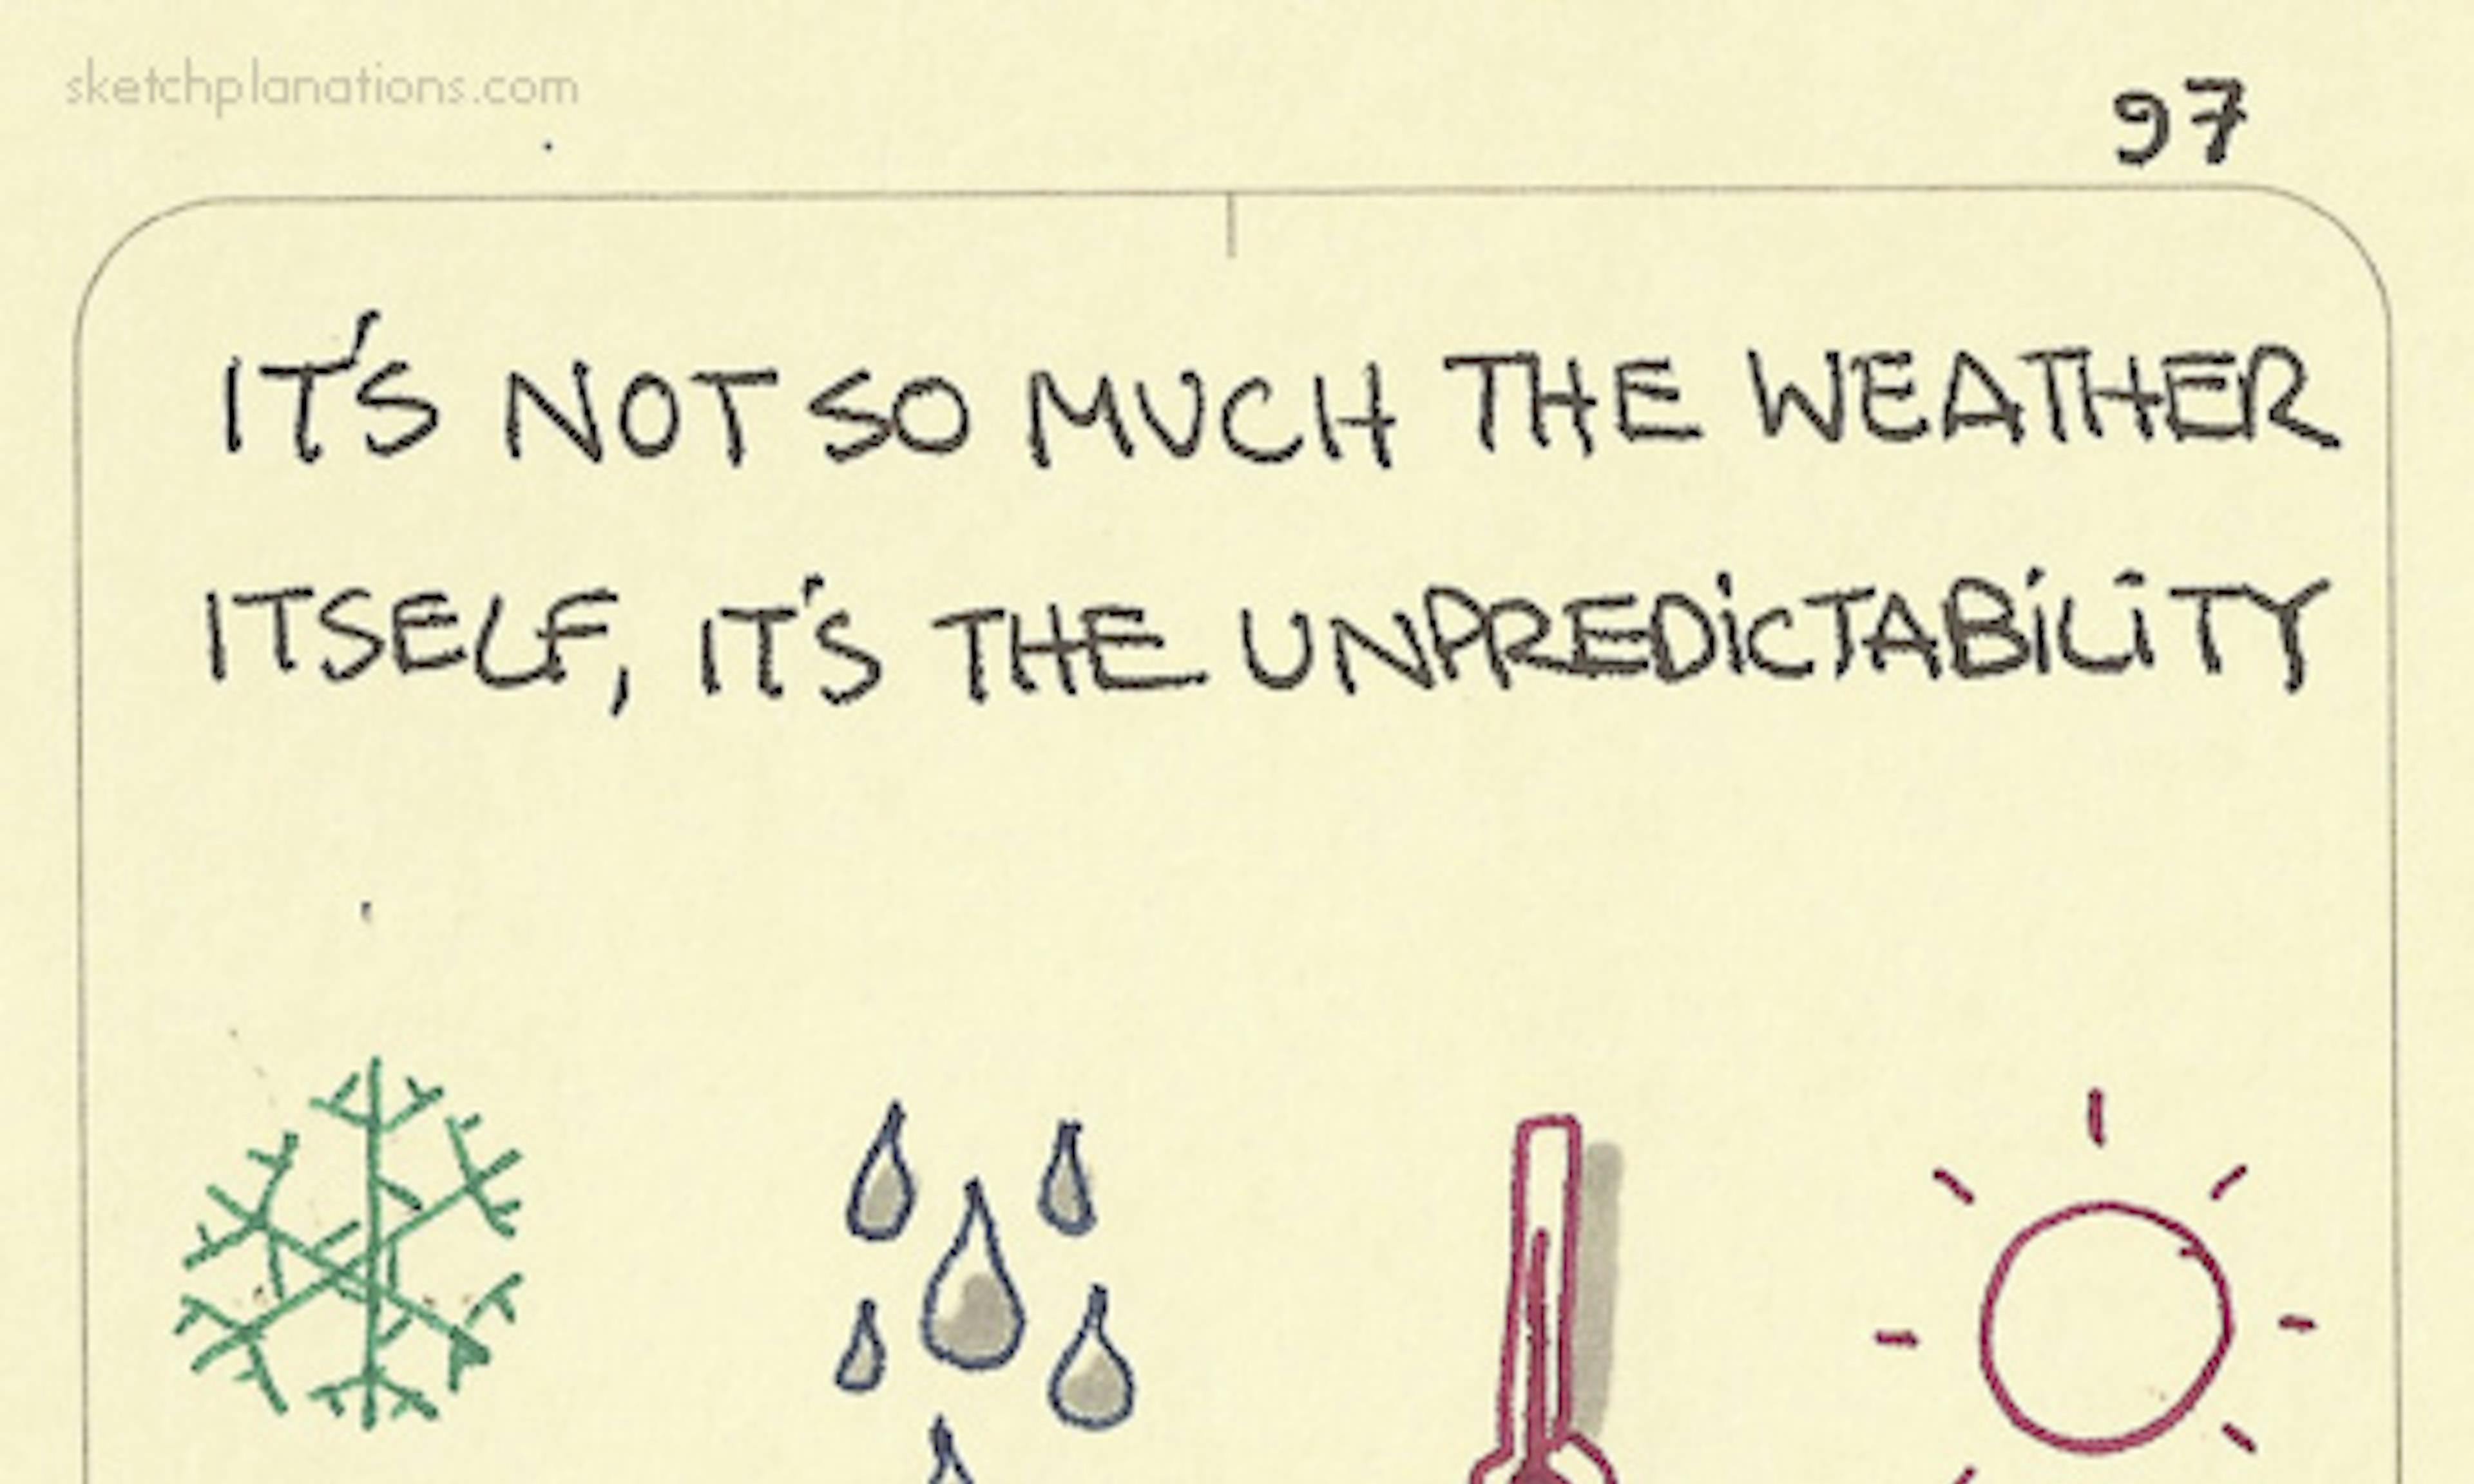 sketchplanations.com
97
IT'S NOT SO MUCH THE WEATHER
ITSELF, IT'S THE UNPREDICTABILITY